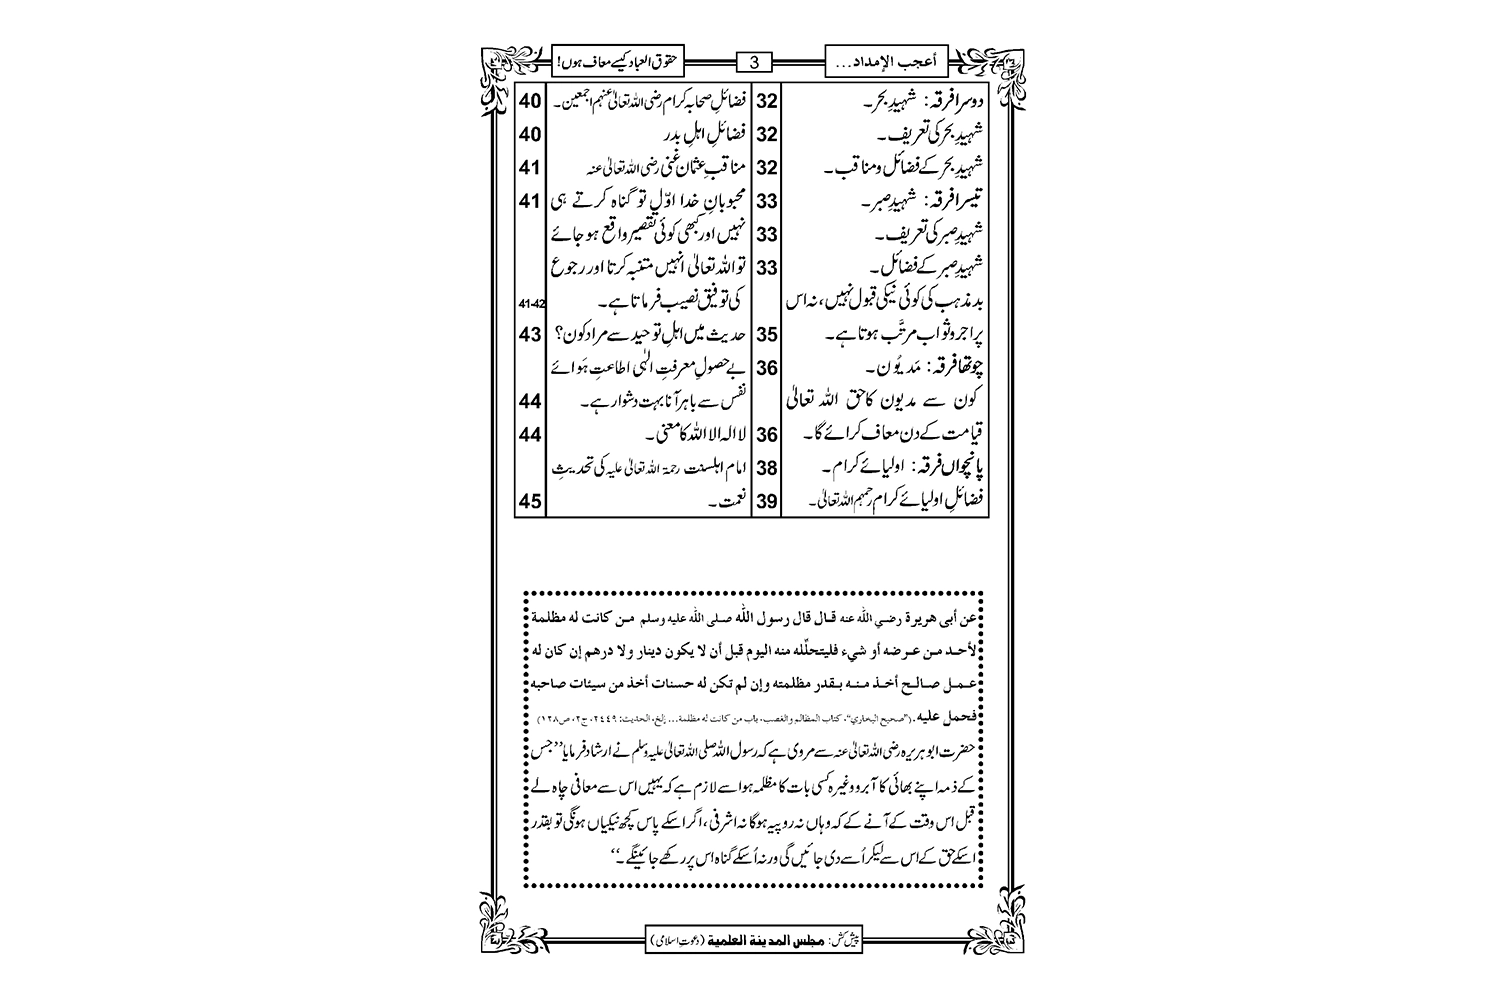 أعجب الإمداد...
3
حقوق العباد کیسے معاف ہوں!
دوسرا فرقہ: شہیدِ بحر۔ 32
شہیدِ بحر کی تعریف۔ 32
شہیدِ بحر کے فضائل و مناقب۔ 32
تیسرا فرقہ: شہیدِ صبر۔ 33
شہیدِ صبر کی تعریف۔ 33
شہیدِ صبر کے فضائل۔ 33
بدمذہب کی کوئی نیکی قبول نہیں، نہ اس
پر اجر و ثواب مرتَّب ہوتا ہے۔ 35
چوتھا فرقہ: مَدیُون۔ 36
کون سے مدیون کا حق اللہ تعالیٰ
قیامت کے دن معاف کرائے گا۔ 36
پانچواں فرقہ: اولیائے کرام۔ 38
فضائلِ اولیائے کرام رحمہم اللہ تعالیٰ۔ 39
فضائلِ صحابہ کرام رضی اللہ تعالیٰ عنہم اجمعین۔ 40
فضائلِ اہلِ بدر 40
مناقبِ عثمان غنی رضی اللہ تعالیٰ عنہ 41
محبوبانِ خدا اوّل تو گناہ کرتے ہی 41
نہیں اور کبھی کوئی تقصیر واقع ہو جائے
تو اللہ تعالیٰ انہیں متنبہ کرتا اور رجوع
کی توفیق نصیب فرماتا ہے۔ 41-42
حدیث میں اہلِ توحید سے مراد کون؟ 43
بے حصولِ معرفتِ الٰہی اطاعتِ ہَوائے
نفس سے باہر آنا بہت دشوار ہے۔ 44
لا الہ الا اللہ کا معنی۔ 44
امام اہلسنت رحمۃ اللہ تعالیٰ علیہ کی تحدیثِ
نعمت۔ 45
عن أبی هریرة رضي الله عنه قال قال رسول الله صلى الله عليه وسلم من كانت له مظلمة
لأحد من عرضه أو شيء فليتحلّله منه اليوم قبل أن لا يكون دينار ولا درهم إن كان له
عمل صالح أخذ منه بقدر مظلمته وإن لم تكن له حسنات أخذ من سيئات صاحبه
فحمل عليه. ("صحيح البخاري"، كتاب المظالم والغصب، باب من كانت له مظلمة... إلخ، الحديث: ٢٤٤٩، ج٢، ص١٢٨)
حضرت ابو ہریرہ رضی اللہ تعالیٰ عنہ سے مروی ہے کہ رسول اللہ صلی اللہ تعالیٰ علیہ وسلم نے ارشاد فرمایا ’’جس
کے ذمہ اپنے بھائی کا آبرو وغیرہ کسی بات کا مظلمہ ہو اسے لازم ہے کہ یہیں اس سے معافی چاہ لے
قبل اس وقت کے آنے کے کہ وہاں نہ روپیہ ہوگا نہ اشرفی، اگر اسکے پاس کچھ نیکیاں ہونگی تو بقدر
اسکے حق کے اس سے لیکر اُسے دی جائیں گی ورنہ اُسکے گناہ اس پر رکھے جائینگے۔‘‘
پیش کش: مجلس المدینة العلمیة (دعوتِ اسلامی)